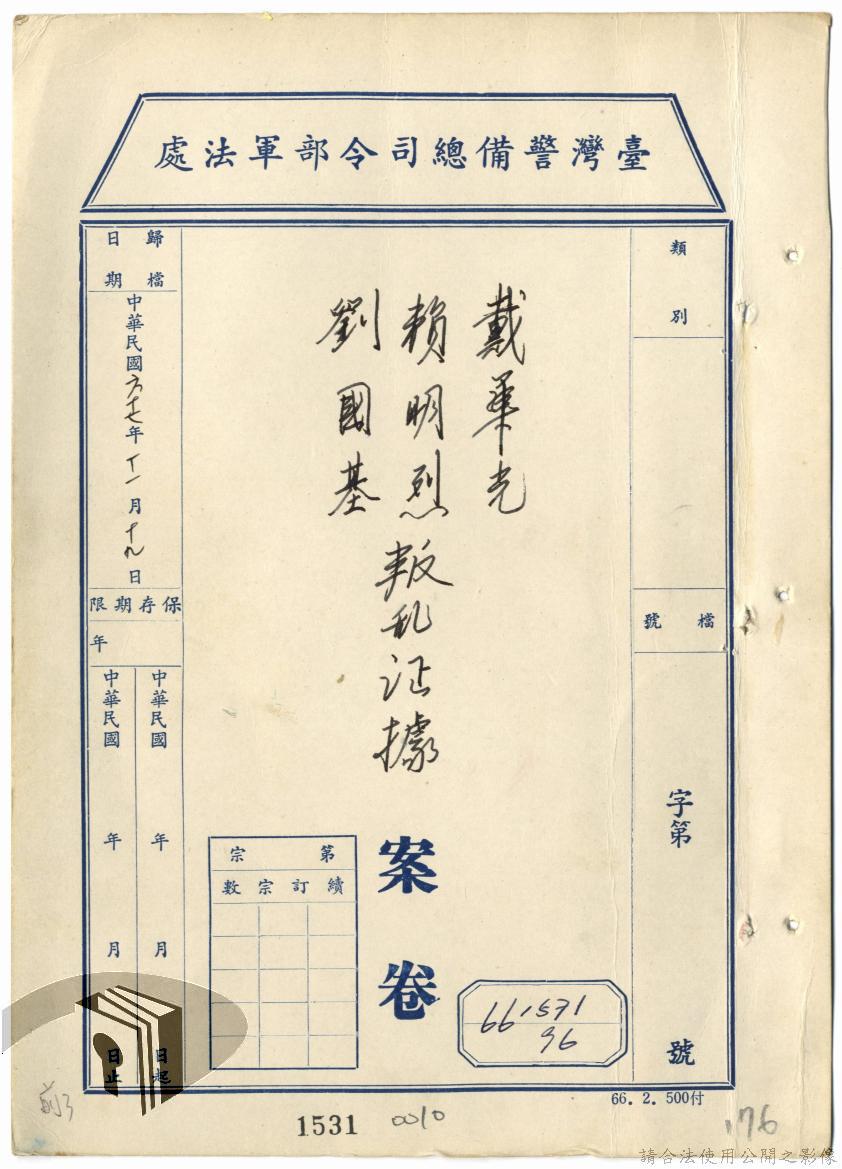 臺灣警備總司令部軍法處
類別
檔號
字第
號
戴華光
賴明烈
劉國基
叛乱证據
案卷
第宗
續訂宗數
歸檔日期
中華民國六十七年十一月十九日
保存期限
年
中華民國 年 月 日起
中華民國 年 月 日止
66.2.500付
1531
0010
176
請合法使用公開之影像